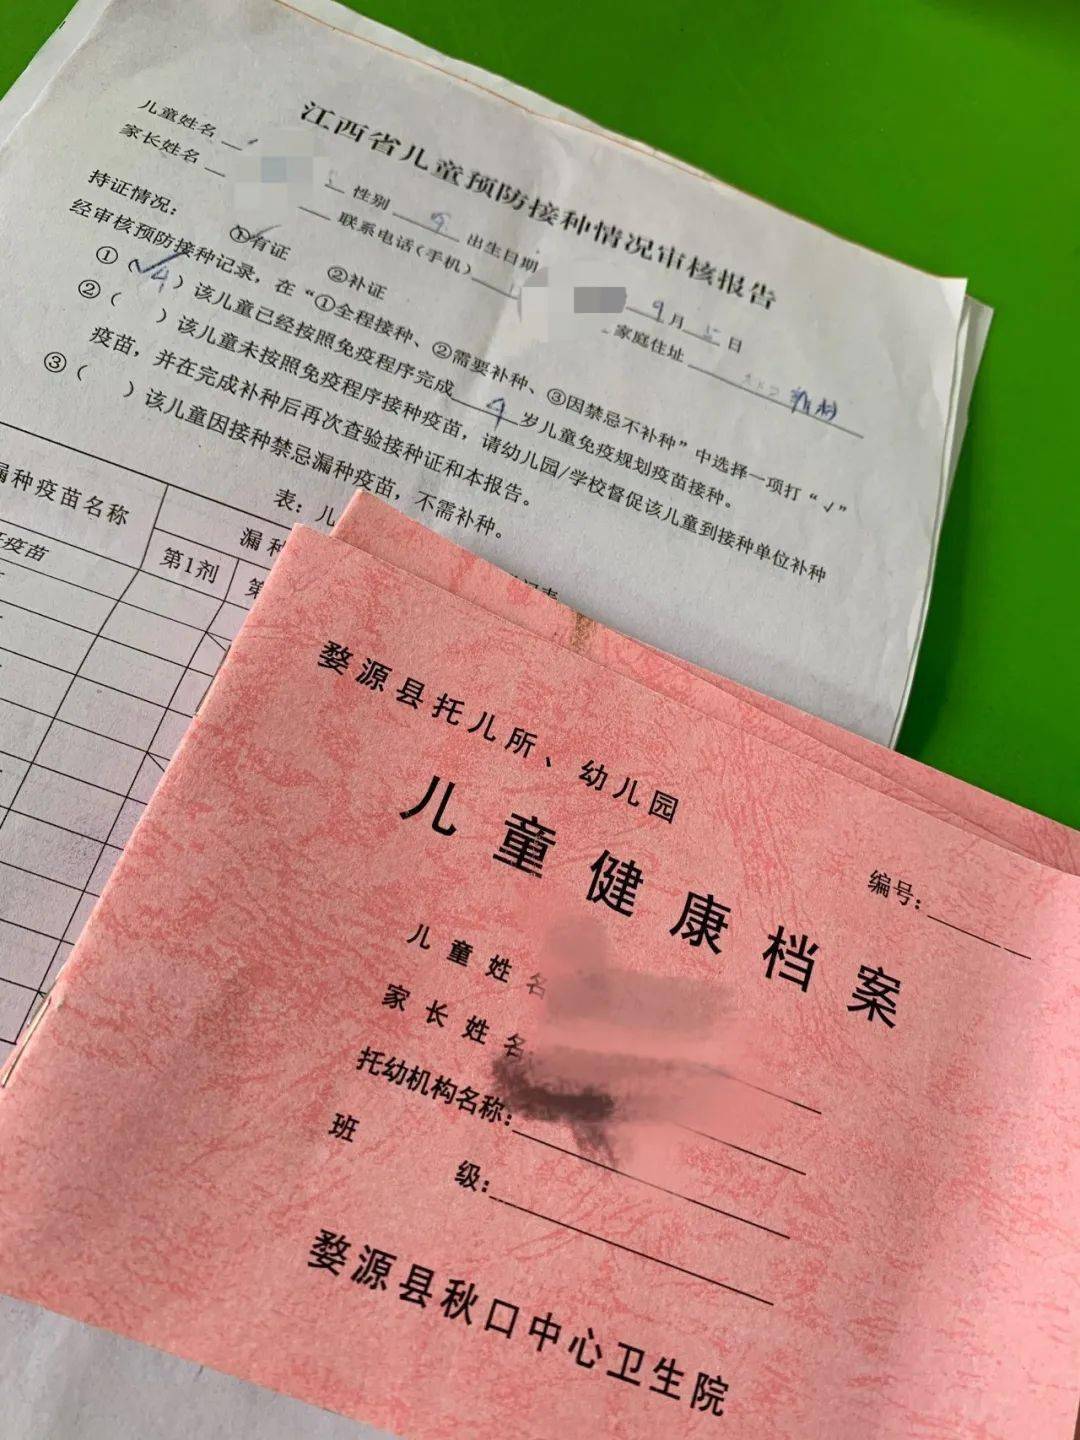 江西省儿童预防接种情况审核报告
儿童姓名
性别
出生日期
9月
日
家长姓名
联系电话(手机)
家庭住址
持证情况: ①有证 ②补证
经审核预防接种记录，在“①全程接种、②需要补种、③因禁忌不补种”中选择一项打“√”
①(√)该儿童已经按照免疫程序完成 4 岁儿童免疫规划疫苗接种。
②( )该儿童未按照免疫程序接种疫苗，请幼儿园/学校督促该儿童到接种单位补种
疫苗，并在完成补种后再次查验接种证和本报告。
③( )该儿童因接种禁忌漏种疫苗，不需补种。
表: 儿
漏种疫苗名称
漏种
第1剂
第
疫苗
婺源县托儿所、幼儿园
儿童健康档案
编号:
儿童姓名
家长姓名
托幼机构名称:
班 级:
婺源县秋口中心卫生院